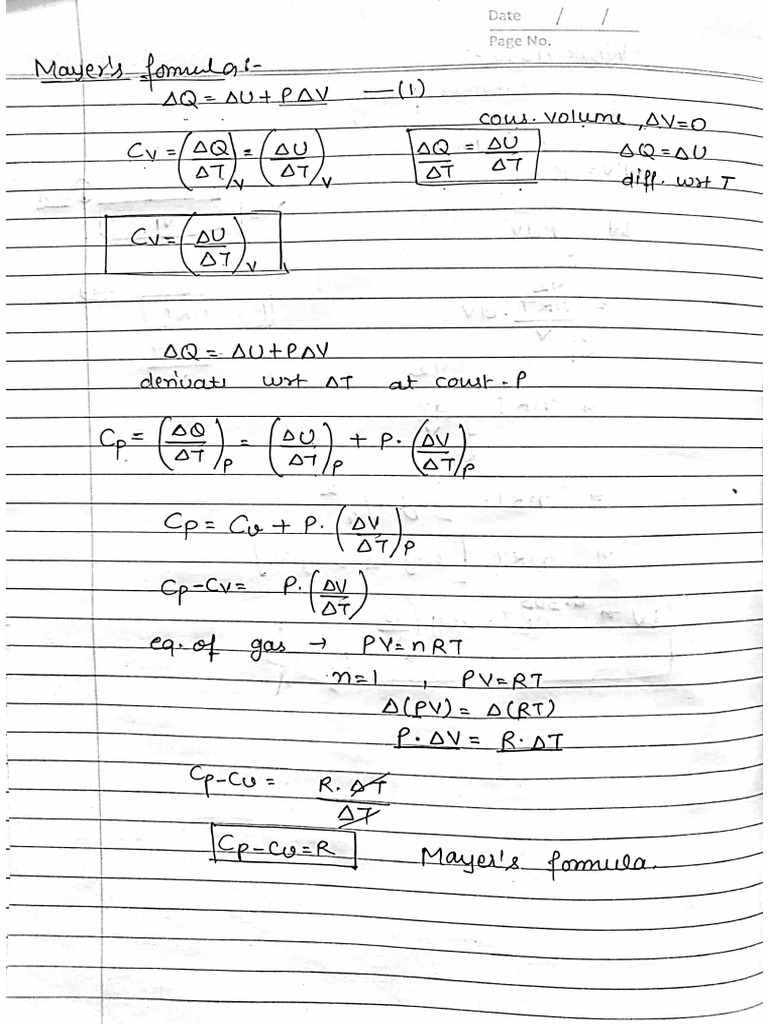 Date / /
Page No.
Mayer's formula :-
ΔQ = ΔU + PΔV —(1)
cons. volume, ΔV=0
Cv = (ΔQ/ΔT)v = (ΔU/ΔT)v ΔQ/ΔT = ΔU/ΔT ΔQ = ΔU
diff. wrt T
Cv = (ΔU/ΔT)v
ΔQ = ΔU + PΔV
derivati wrt ΔT at const. P
Cp = (ΔQ/ΔT)p = (ΔU/ΔT)p + P. (ΔV/ΔT)p
Cp = Cv + P. (ΔV/ΔT)p
Cp-Cv = P. (ΔV/ΔT)
eq. of gas → PV = nRT
n=1 , PV = RT
Δ(PV) = Δ(RT)
P.ΔV = R.ΔT
Cp-Cv = R.ΔT/ΔT
Cp-Cv=R Mayer's formula.